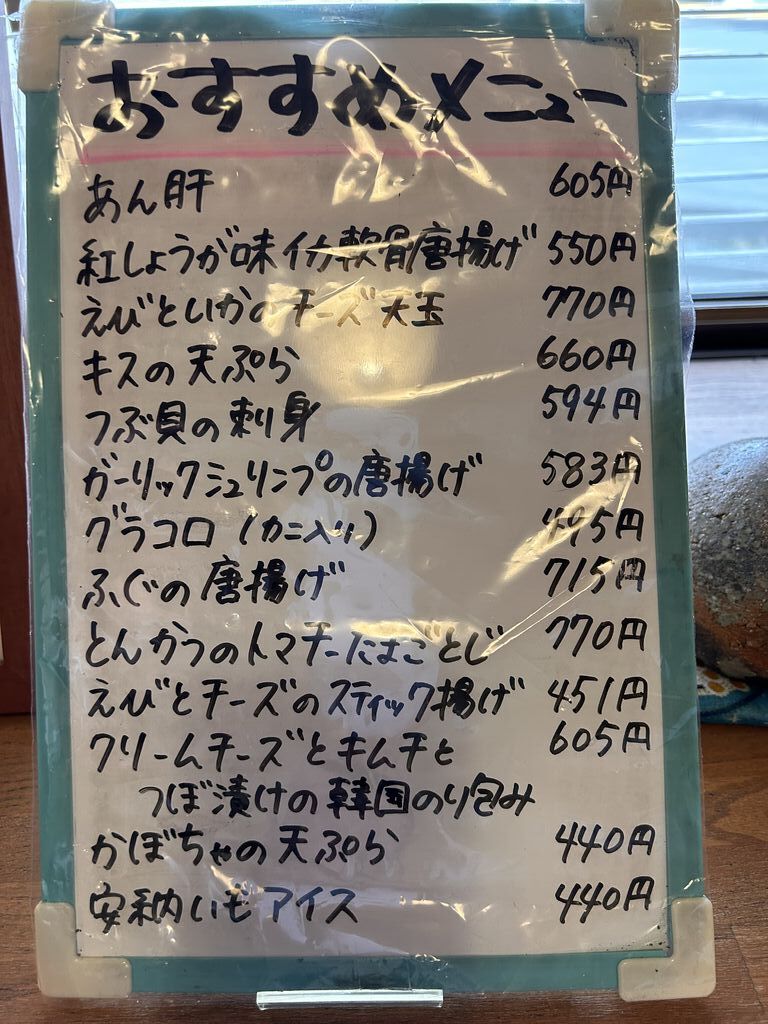 おすすめメニュー
あん肝 605円
紅しょうが味イカ軟骨唐揚げ 550円
えびといかのチーズ天玉 770円
キスの天ぷら 660円
つぶ貝の刺身 594円
ガーリックシュリンプの唐揚げ 583円
グラコロ(カニ入り) 495円
ふぐの唐揚げ 715円
とんかつのトマチーたまごとじ 770円
えびとチーズのスティック揚げ 451円
クリームチーズとキムチと 605円
つぼ漬けの韓国のり包み
かぼちゃの天ぷら 440円
安納いもアイス 440円